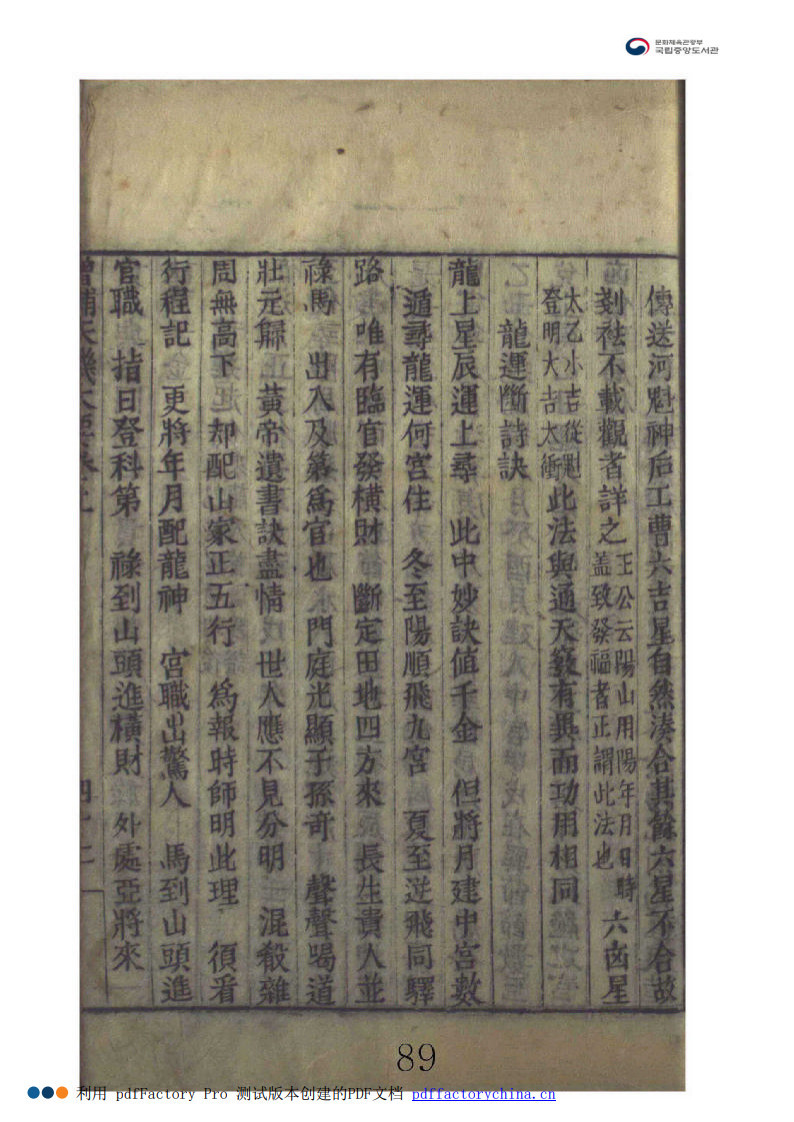 문화체육관광부
국립중앙도서관
傳送河魁神后工曹六吉星自然湊合其餘六星不合故
刻祛不載觀者詳之王公云陽山用陽年月日時
盖致發福者正謂此法也六凶星
太乙小吉從魁
登明大吉太衝此法與通天竅有異而功用相同
龍運斷詩訣
龍上星辰運上尋 此中妙訣值千金 但將月建中宮數
遁尋龍運何宮住 冬至陽順飛九宮 夏至逆飛同驛
路 唯有臨官發橫財 斷定田地四方來 長生貴人並
祿馬 出入及第爲官也 門庭光顯子孫奇 聲聲喝道
壯元歸 黃帝遺書訣盡情 世人應不見分明 混殺雜
周無高下 却配山家正五行 爲報時師明此理 須看
行程記 更將年月配龍神 宮職出驚人 馬到山頭進
官職 指日登科第 祿到山頭進橫財 外處亞將來
增補天機大要卷上 四十二
89
利用 pdfFactory Pro 测试版本创建的PDF文档 pdffactorychina.cn